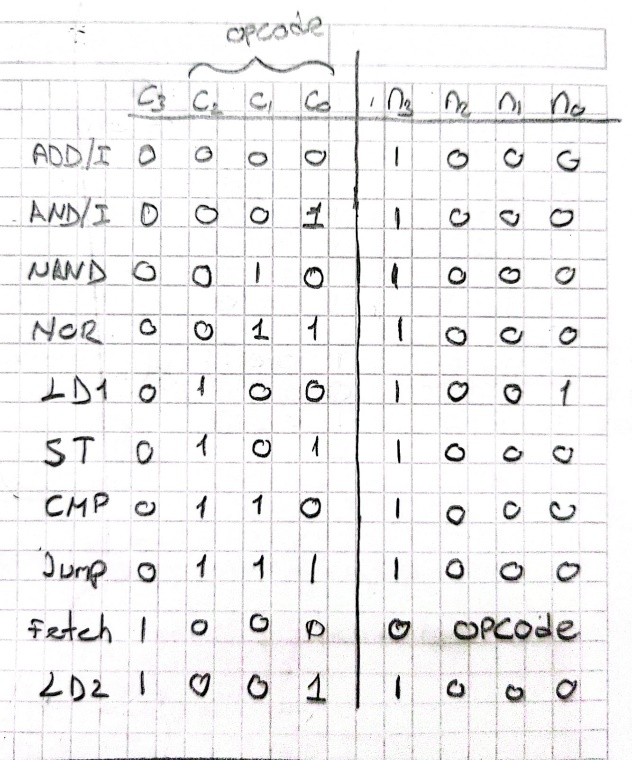 opcode
C3 C2 C1 C0 n3 n2 n1 n0
ADD/I 0 0 0 0 1 0 0 0
AND/I 0 0 0 1 1 0 0 0
NAND 0 0 1 0 1 0 0 0
NOR 0 0 1 1 1 0 0 0
LD1 0 1 0 0 1 0 0 1
ST 0 1 0 1 1 0 0 0
CMP 0 1 1 0 1 0 0 0
Jump 0 1 1 1 1 0 0 0
Fetch 1 0 0 0 0 opcode
LD2 1 0 0 1 1 0 0 0